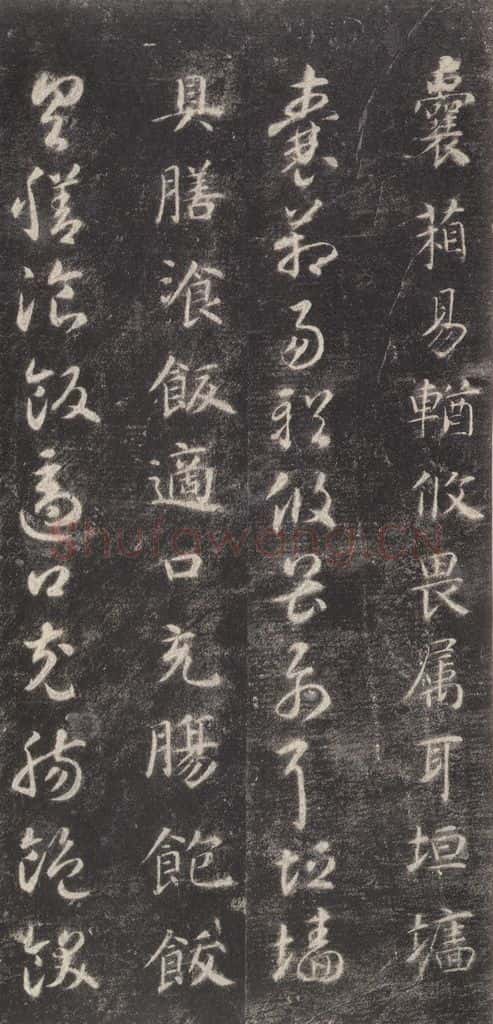 囊箱易輶攸畏属耳垣墻
囊箱易輶攸畏属耳垣墻
具膳湌飯適口充腸飽飫
具膳湌飯適口充腸飽飫
Shufawang.cn